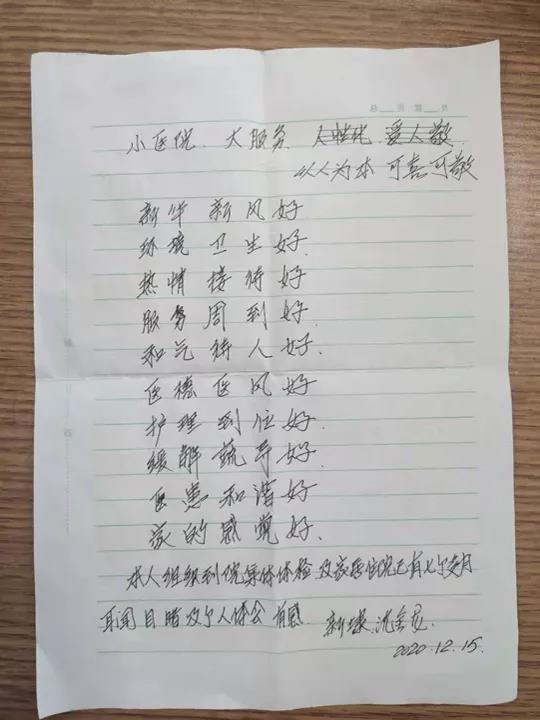 总 页 第 页
小医院. 大服务. 人性化. 爱人敬.
以人为本 可喜可敬
新华新风好
环境卫生好.
热情接待好
服务周到好.
和气待人好.
医德医风好
护理到位好.
缓解疏导好.
医患和谐好
家的感觉好.
本人组织到院集体体检及家居住院已有七个多月
耳闻目睹及个人体会有感. 新 沈
2020.12.15.